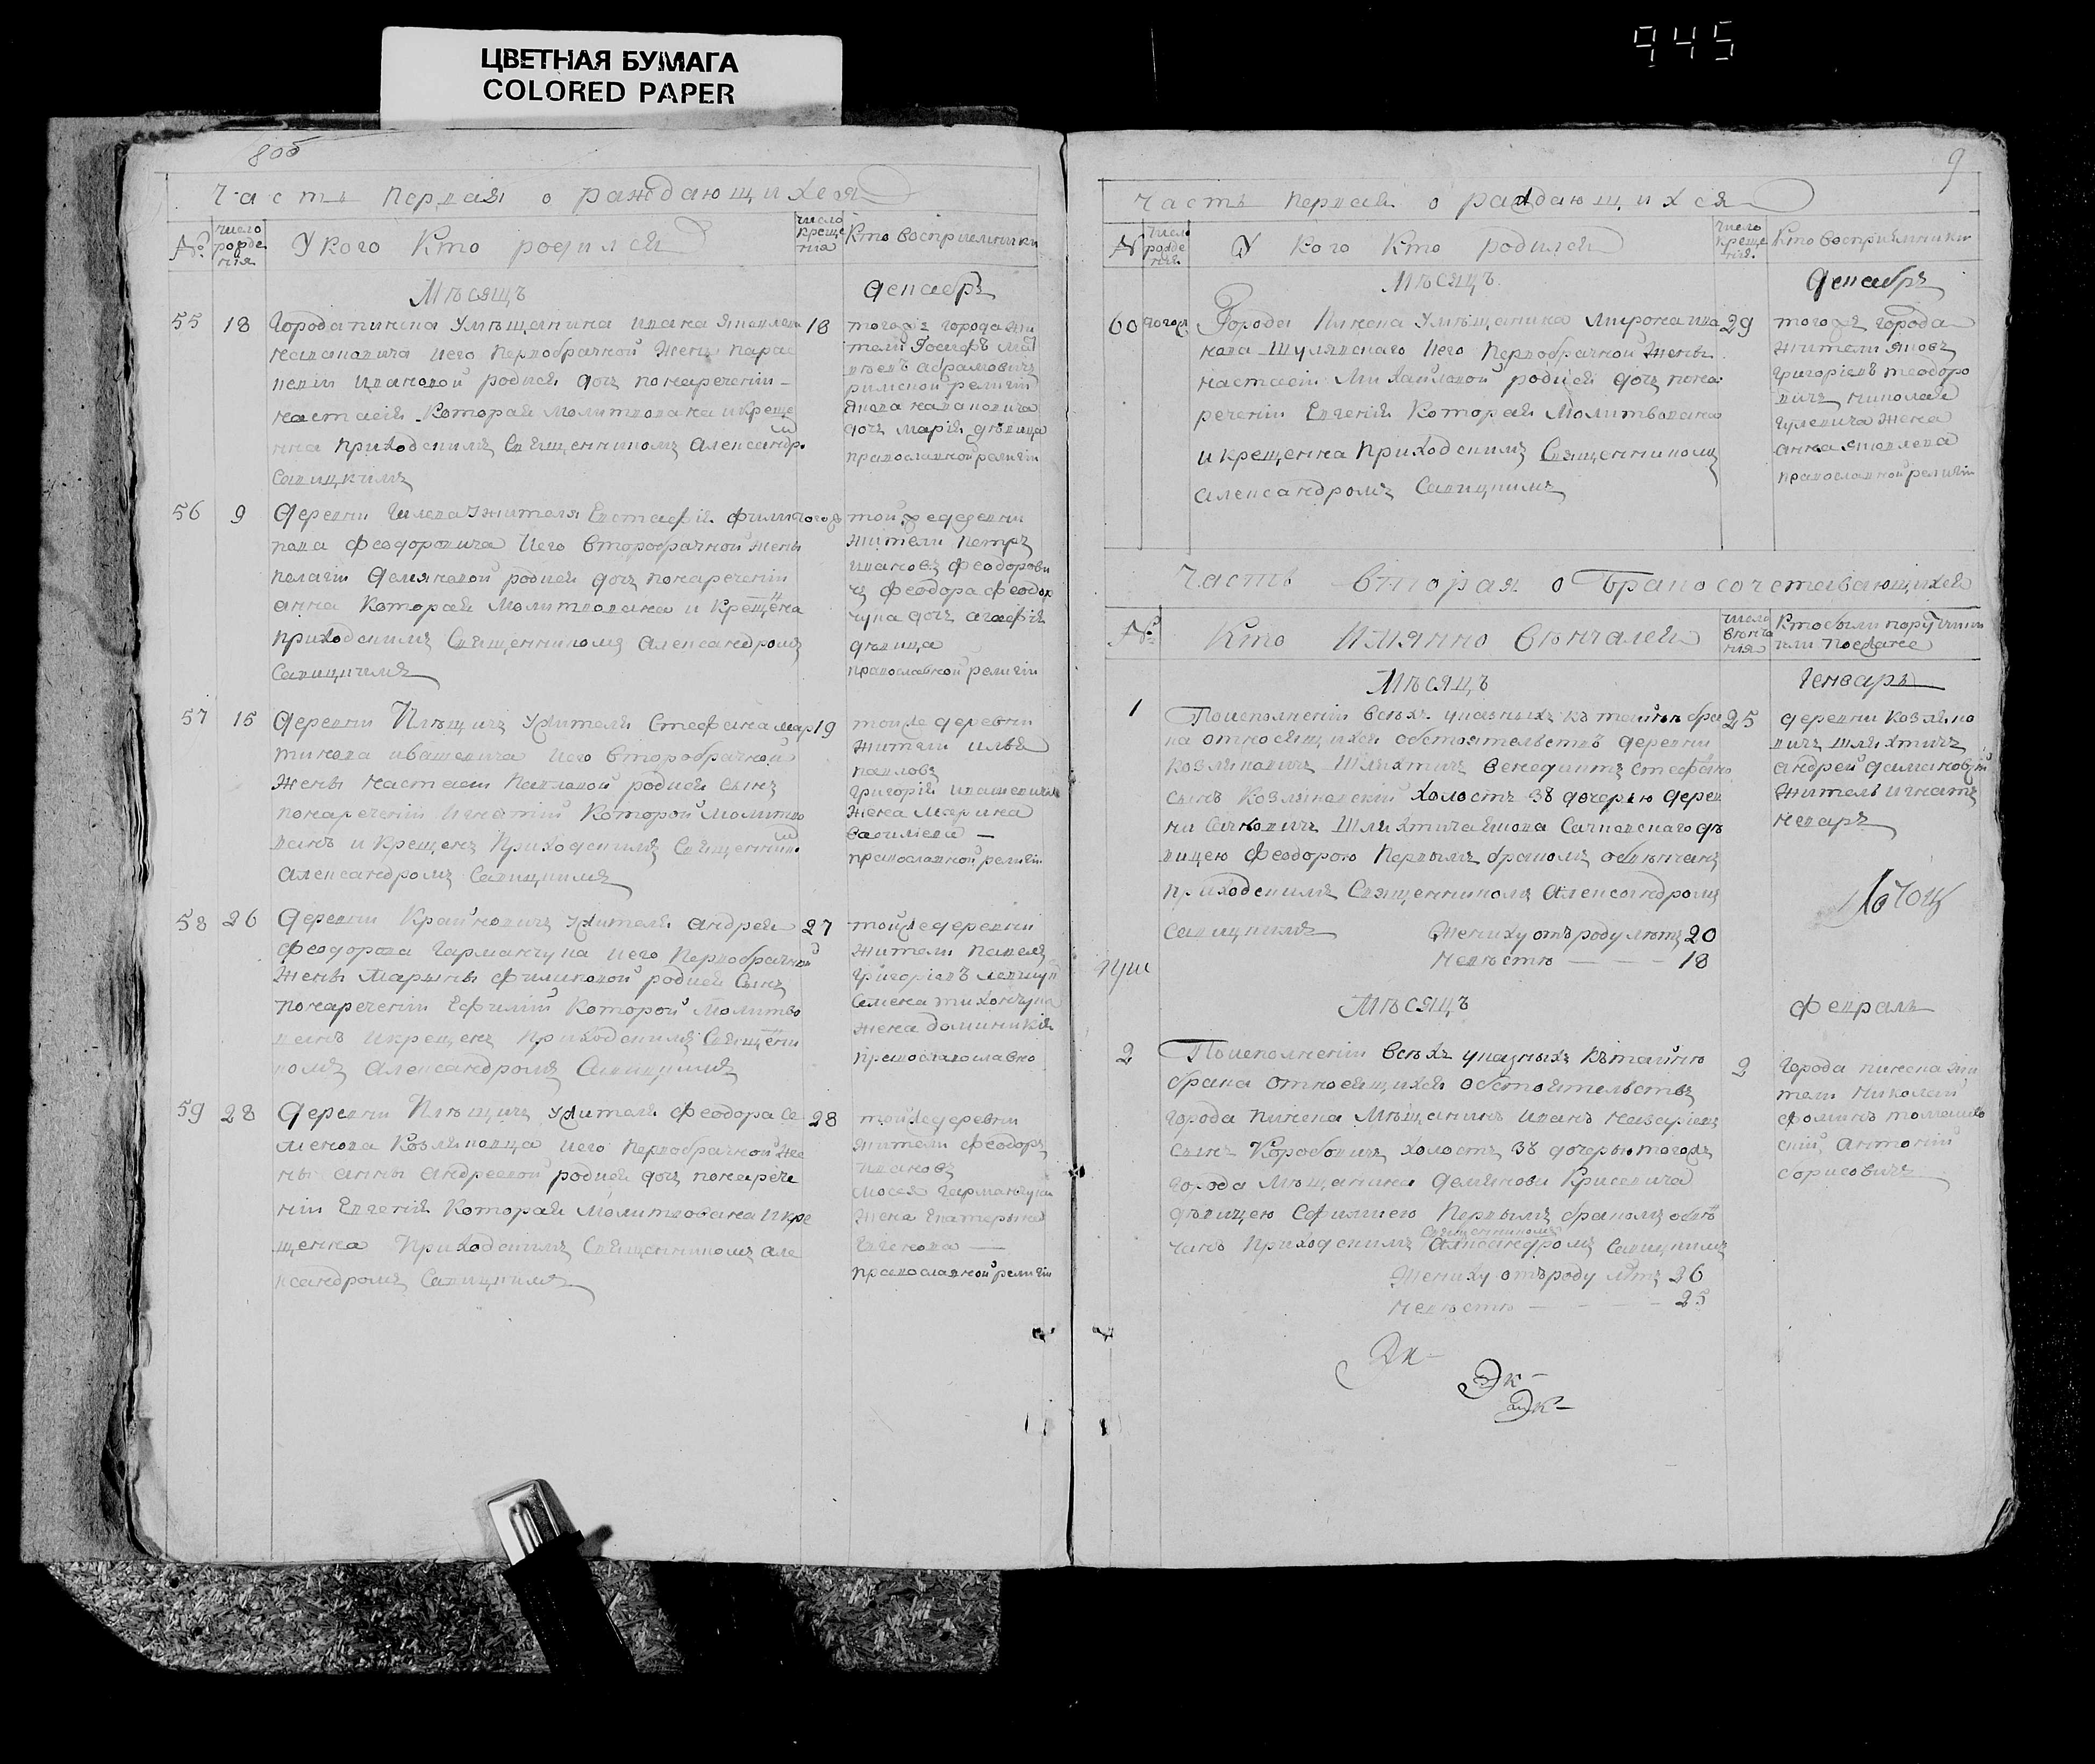 ЦВЕТНАЯ БУМАГА
COLORED PAPER
945
8об
Часть первая о раждающихся
№ число рожде ния У кого Кто родился число креще ния Кто восприемники
Мѣсяцъ Декабрь
55 18 Города пинска Умѣщанина ивана яковлева 18
его первобрачной жены парас
кевіи ивановой родися дочь понареченіи
настасія которая молитвована и креще
нна приходскимъ священникомъ александро
савицкимъ
тогожъ города жи
тели
абрамовичъ
римской религіи
дочь марія дѣвица
православной религіи
56 9 Деревни жителя Евстафія фили тогожъ
пова феодоровича Иего второбрачной жены
пелагіи демяновой родися дочь понареченіи
анна которая молитвована и крещена
приходскимъ священникомъ александромъ
савицкимъ
той же деревни
жители петръ
ивановъ феодорови
чъ феодора феодор
чука дочь агафія
дѣвица
православной религіи
57 15 Деревни Плѣщичъ Ужителя Стефана мар 19
тинова ивашевича Иего второбрачной
жены настасіи павловой родися сынъ
понареченіи игнатій которой молитво
ванъ и крещенъ приходскимъ священнико
александромъ савицкимъ
тойже деревни
жители илья
павловъ
григорія ивашевича
жена марина
василиева
православной религіи
58 26 Деревни Крайновичъ Ужителя андрея 27
феодорова Германчука иего первобрачной
жены марины филиповой родися сынъ
понареченіи Ефимій которой молитво
ванъ икрещенъ приходскимъ священни
комъ александромъ савицкимъ
тойже деревни
жители павелъ
григоріевъ
семена тихончука
жена доминикія
59 28 Деревни Плѣщичъ Ужителя феодора Се 28
менова Козляковца иего первобрачной же
ны анны андреевой родися дочь понарече
ніи Евгенія которая молитвована икре
щенна приходскимъ священникомъ але
ксандромъ савицкимъ
тойже деревни
жители феодоръ
ивановъ
мосея германчука
жена екатерына
православной религіи
9
Часть первая о раждающихся
№ число рожде ния У кого Кто родился число креще ния Кто восприемники
Мѣсяцъ Декабрь
60 тогож Города Пинска Умѣщанина мирона ива 29
нова Шулявскаго Иего первобрачной жены
настасіи Михайловой родися дочь пона
реченіи Евгенія которая молитвованна
и крещенна приходскимъ священникомъ
александромъ савицкимъ
тогожъ города
жители яковъ
григоріевъ теодоро
вичъ николая
гулевича жена
анна яковлева
православной религіи
Часть вторая о бракосочетавающихся
№ Кто Имянно вѣнчался число вѣнча ния Кто были поручники или поезжане
Мѣсяцъ Генварь
1 Поисполненіи всѣхъ указныхъ къ тайнѣ бра 25
ка относящихся обстоятельствъ деревни
козляковичъ шляхтичъ венедиктъ стефано
сынъ козляковскій холостъ зъ дочерью дерев
ни сачковичъ шляхтича якова сачковскаго дѣ
вицею феодорою первымъ бракомъ обвѣнчанъ
приходскимъ священникомъ александромъ
савицкимъ Жениху отъроду лѣтъ 20
невѣстѣ — — — 18
деревни козляко
вичъ шляхтичъ
андрей
житель игнатъ
Мѣсяцъ февраль
2 Поисполненіи всѣхъ указныхъ къ тайнѣ 2
брака относящихся обстоятельствъ
города пинска мѣщанинъ иванъ назаріевъ
сынъ Коробовичъ холостъ зъ дочерью тогожъ
города мѣщанина демянова Крисевича
дѣвицею Ефимиею первымъ бракомъ обвѣн
чанъ приходскимъ священникомъ александромъ савицкимъ
Жениху отъроду лѣтъ 26
невѣстѣ — — — 25
города пинска жи
тели николай
фоминъ
антоній
борисовичъ